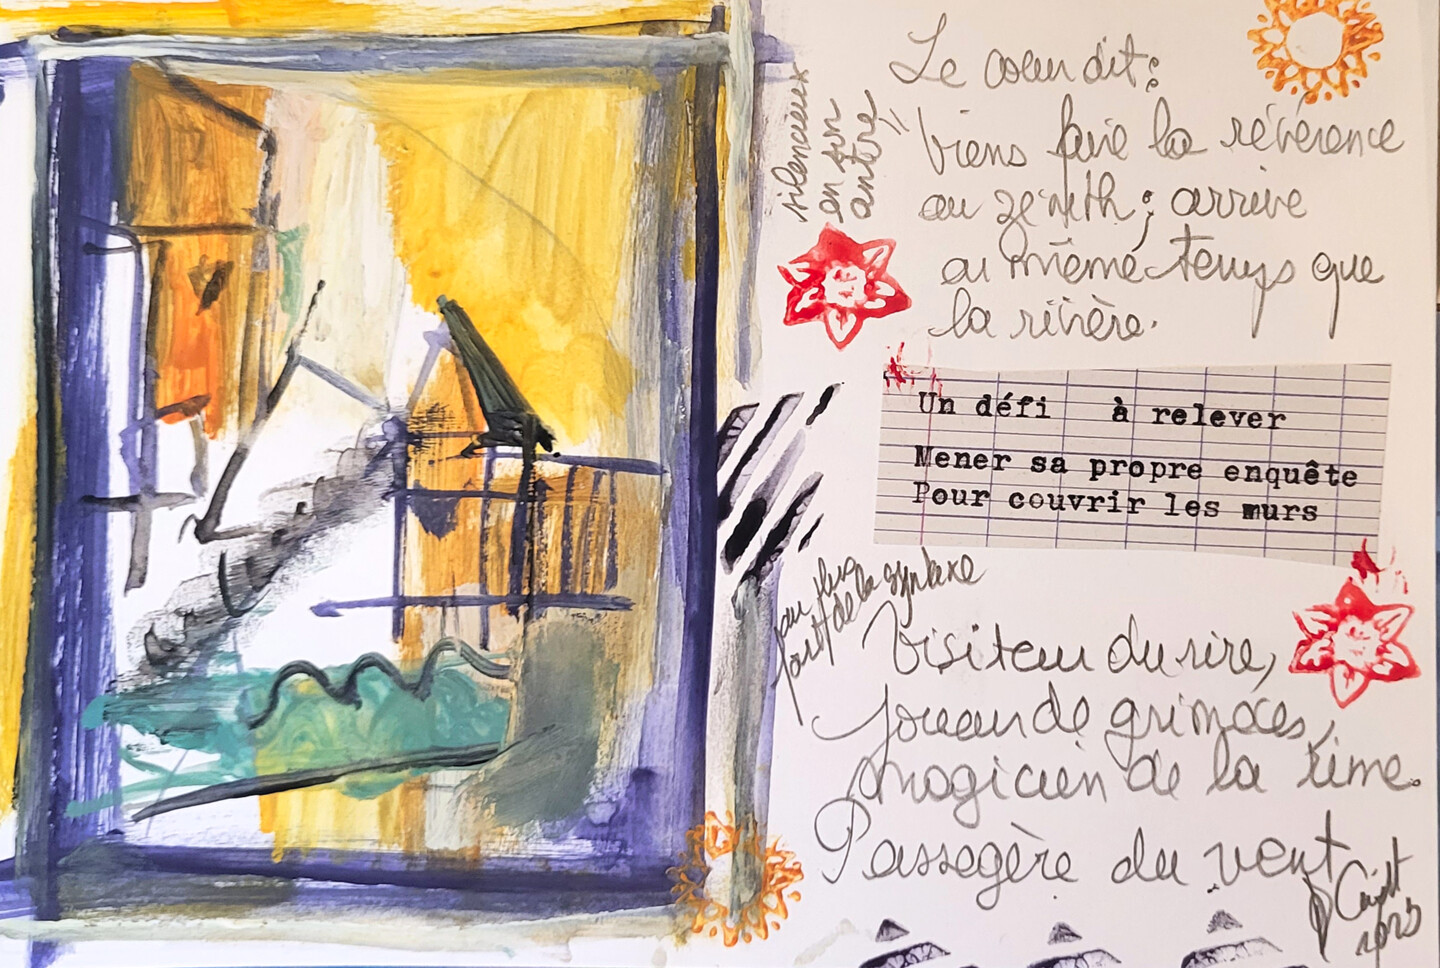 Le coeur dit :
silencieux
en son
antre
" Viens faire la révérence
au zénith ; arrive
au même temps que
la rivière.
Un défi à relever
Mener sa propre enquête
Pour couvrir les murs
au plus
fort de la syntaxe
Visiteur du rire,
Joueur de grimaces,
Magicien de la rime.
Passagère du vent
2023